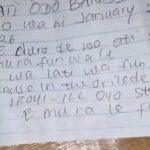 ODO
O wa ni January
26
E duro de wa ati
mura fun wa le
wa lati wa fun
in the orilede
IKOYI-ILE OYO ST
E mura le